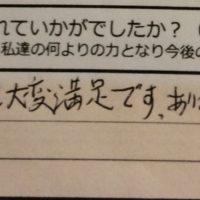 れていかがでしたか？
私達の何よりの力となり今後の
大変満足です、あり